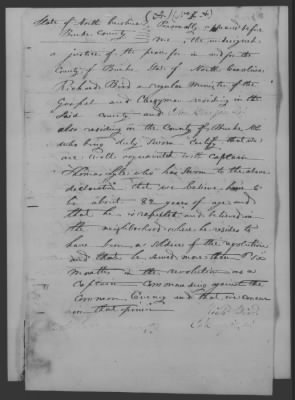 State of North Carolina
Burke County
Personally appeared before
me, the undersigned
a justice of the peace for in and for the
County of Burke State of North Carolina
Richard Bird a regular Minister of the
Gospel and Clergyman residing in the
said county and
also residing in the County of Burke NC
who being duly sworn certify that we
are well acquainted with Captain
Thomas Lytle who has sworn to the above
declaration that we believe him to
be about 82 years of age and
that he is respected and believed in
the neighborhood where he resides to
have been a soldier of the revolution
and that he served more than six
months in the revolution as a
Captain Commanding against the
Common Enemy and that we concur
in that opinion